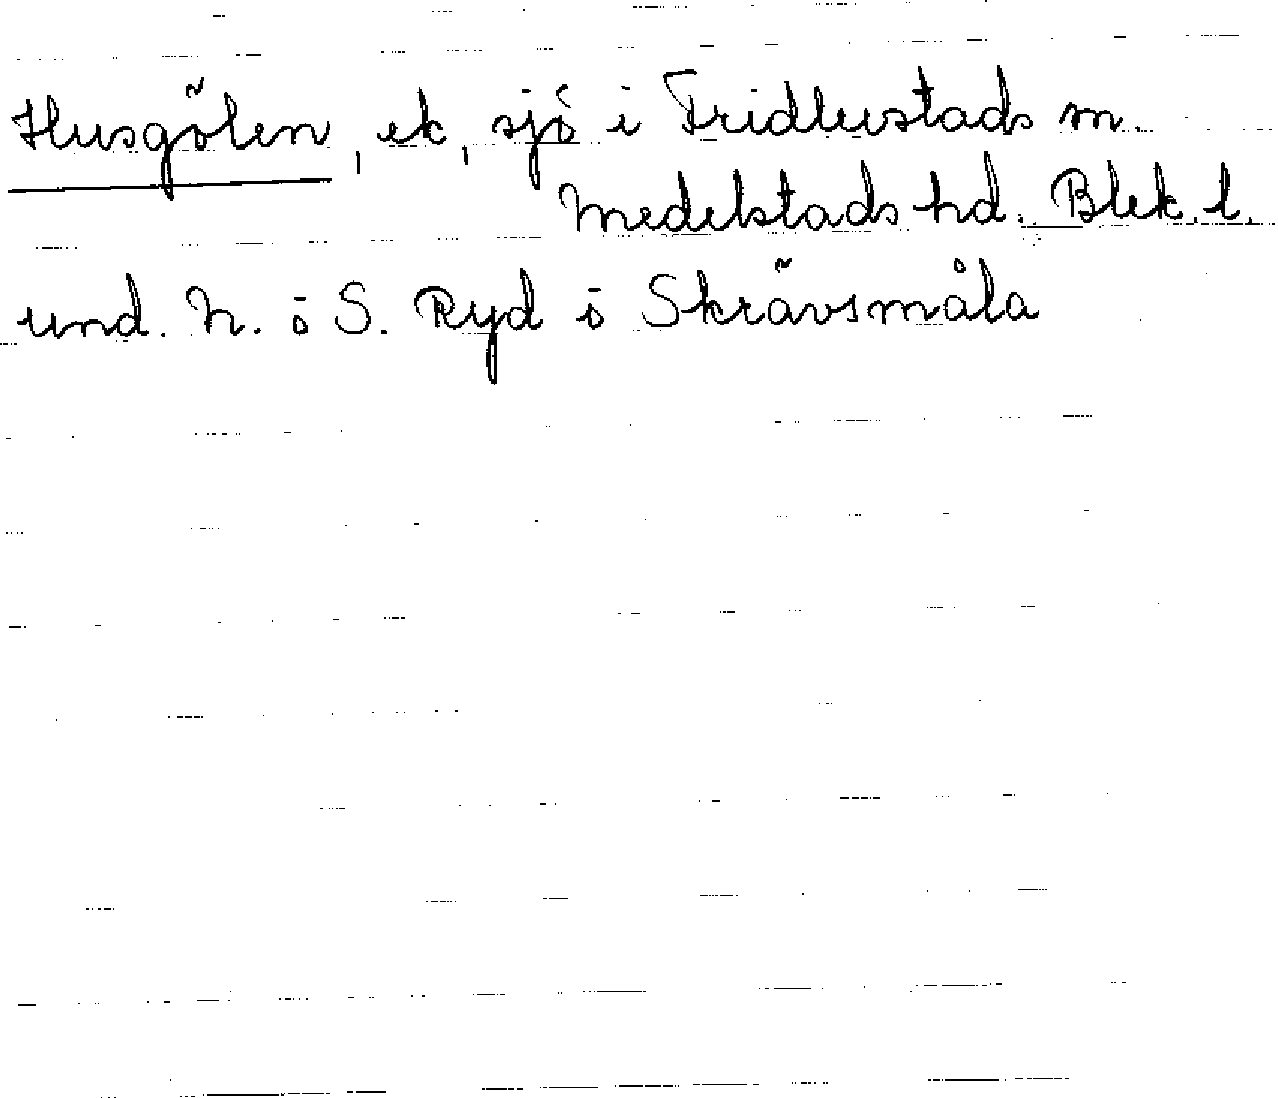 Husgölen, ek, sjö i Fridlevstads sn.
Medelstads hd. Blek. l.
und. N. ö S. Ryd ö Skrävsmåla